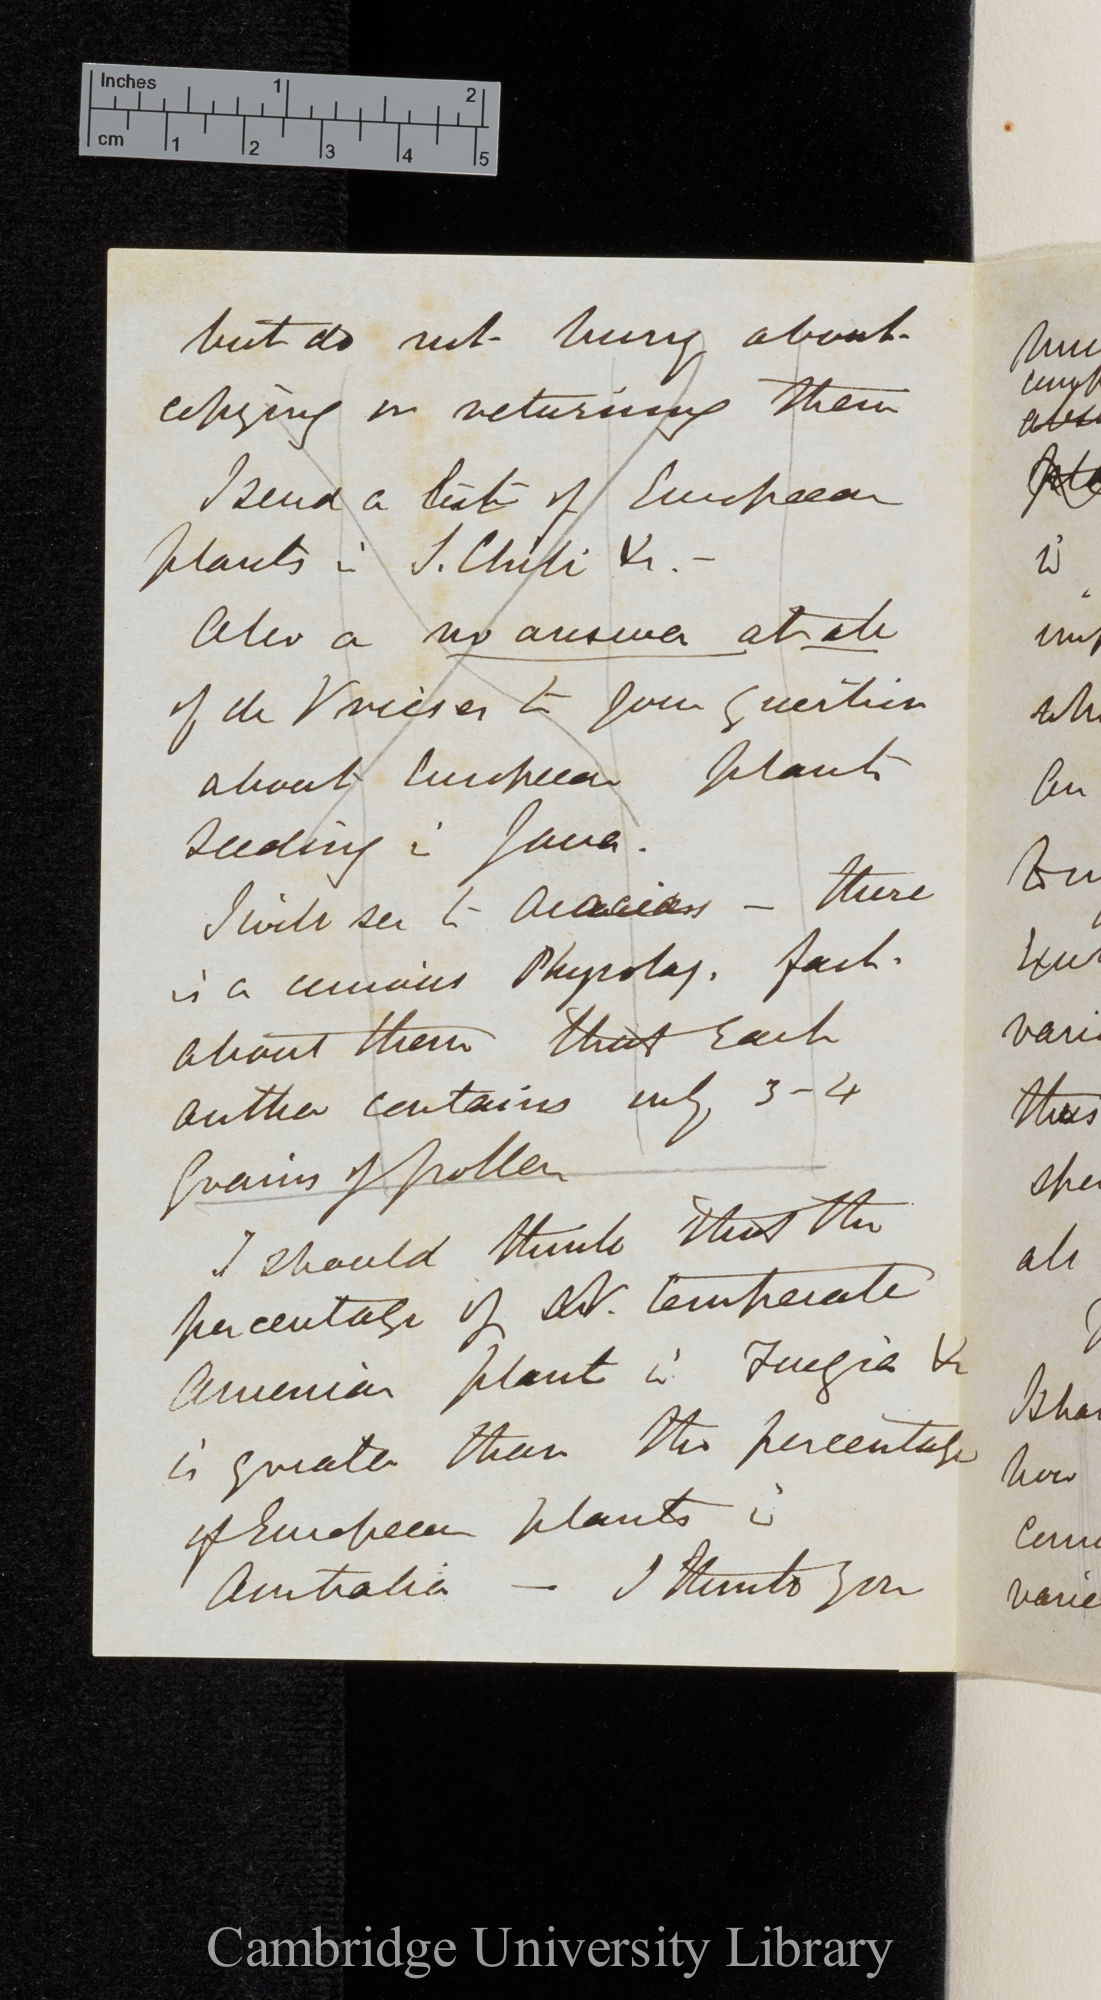 Inches 1 2
cm 1 2 3 4 5
but do not hurry about
copying or returning them
I send a list of European
plants in S. Chili &c. –
Also a no answer at all
of de Vriese's to your question
about European plants
seeding in Java.
I will see to Acacias – there
is a curious Physiolog. fact.
about them that each
anther contains only 3–4
grains of pollen
I should think that the
percentage of N. temperate
American plants in Fuegia &c
is greater than the percentage
of European plants in
Australia — I think you
is
varie
Cambridge University Library